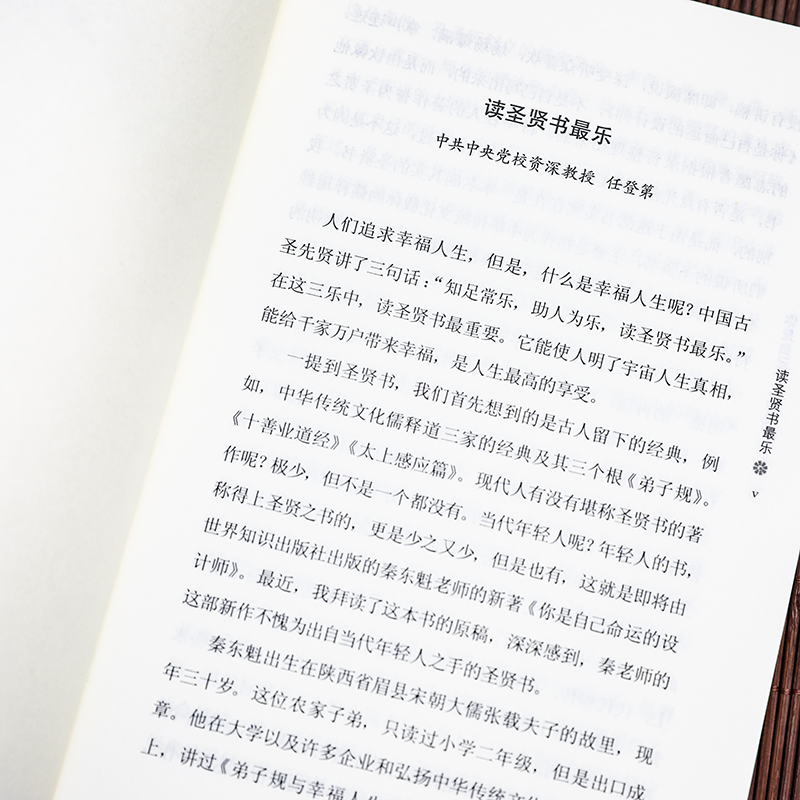 读圣贤书最乐
中共中央党校资深教授 任登第
人们追求幸福人生，但是，什么是幸福人生呢？中国古
圣先贤讲了三句话：“知足常乐，助人为乐，读圣贤书最乐。”
在这三乐中，读圣贤书最重要。它能使人明了宇宙人生真相，
能给千家万户带来幸福，是人生最高的享受。
一提到圣贤书，我们首先想到的是古人留下的经典，例
如，中华传统文化儒释道三家的经典及其三个根《弟子规》。
《十善业道经》《太上感应篇》。现代人有没有堪称圣贤书的著
作呢？极少，但不是一个都没有。当代年轻人呢？年轻人的书，
称得上圣贤之书的，更是少之又少，但是也有，这就是即将由
世界知识出版社出版的秦东魁老师的新著《你是自己命运的设
计师》。最近，我拜读了这本书的原稿，深深感到，秦老师的
这部新作不愧为出自当代年轻人之手的圣贤书。
秦东魁出生在陕西省眉县宋朝大儒张载夫子的故里，现
年三十岁。这位农家子弟，只读过小学二年级，但是出口成
章。他在大学以及许多企业和弘扬中华传统文
上，讲过《弟子规与幸福人
读圣贤书最乐
v